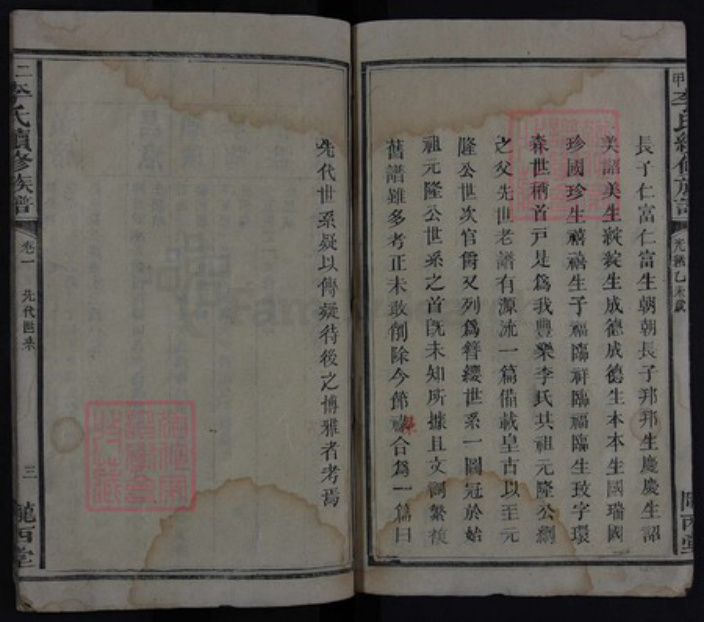 李氏續修族譜
光緒乙未歲
長子仁富仁富生朝朝長子邦邦生慶慶生詔
美詔美生綻綻生成德成德生本本生國瑞國
珍國珍生禧禧生子福臨祥臨福臨生玫字環
森世稱首戸是為我豐樂李氏共祖元隆公溯
之父先世老譜有源流一篇備載皇古以至元
隆公世次官爵又列為簪纓世系一圖冠於始
祖元隆公世系之首旣未知所據且文詞繁複
舊譜雖多考正未敢創除今節 合為一篇曰
先代世系疑以傳疑待後之博雅者考焉
二李氏續修族譜
卷一 先代世系
三
隴西堂